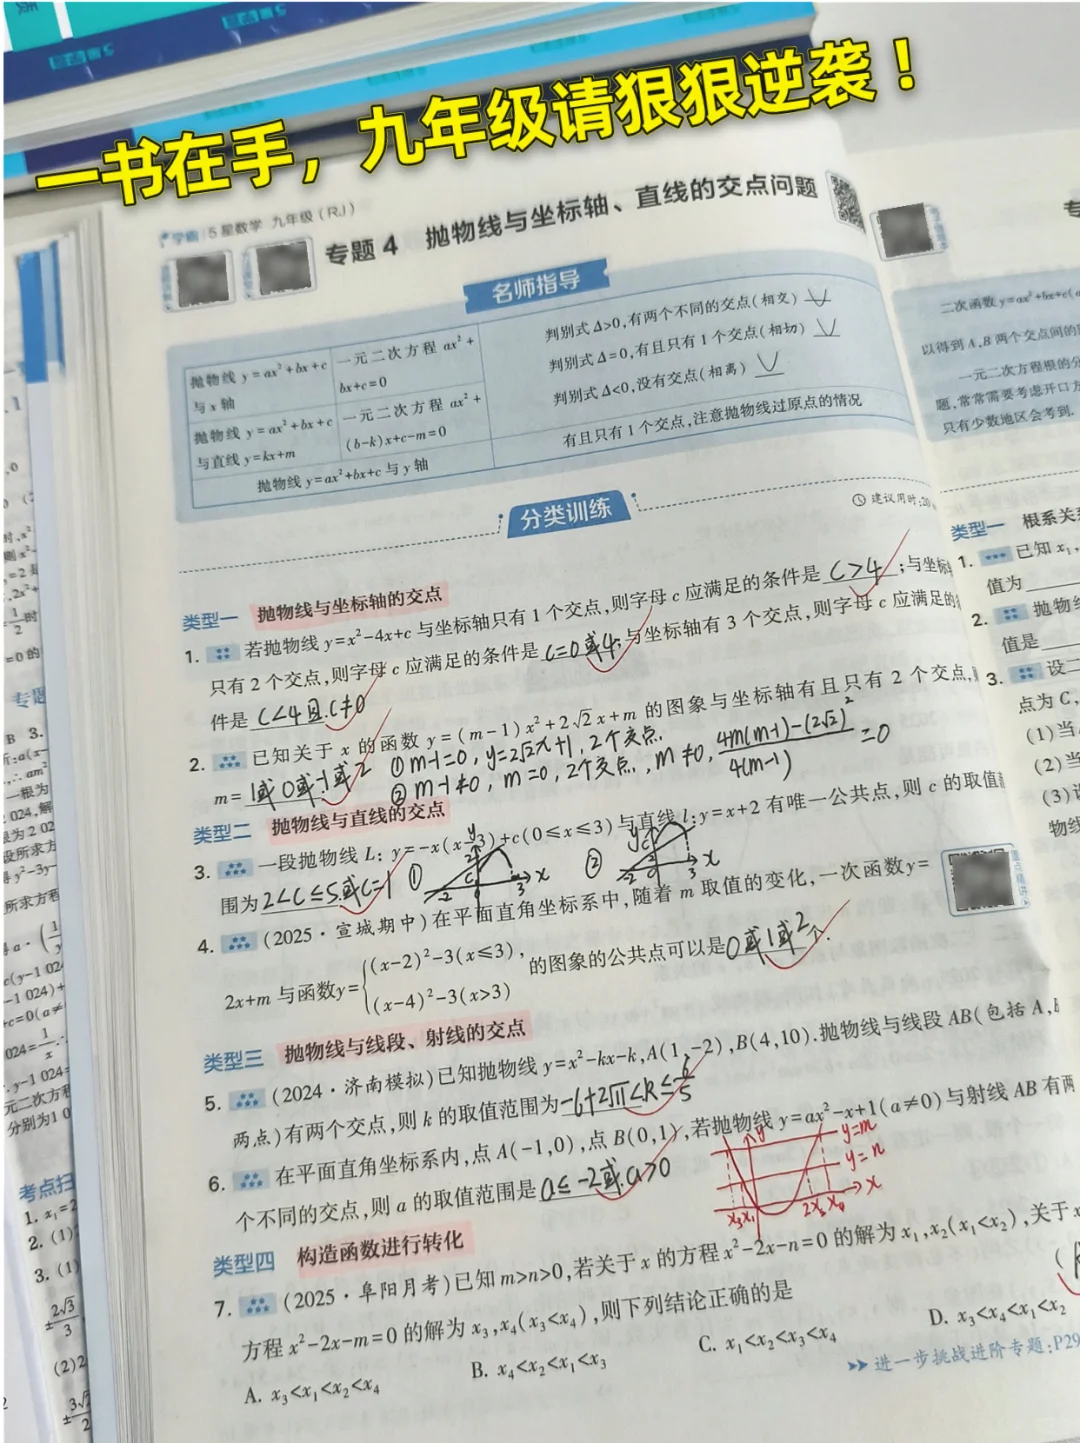 一书在手，九年级请狠狠逆袭！
学霸 | 5星数学 九年级（RJ）
专题4 抛物线与坐标轴、直线的交点问题
名师指导
抛物线 y=ax²+bx+c
与 x 轴
一元二次方程 ax²+
bx+c=0
判别式 Δ>0,有两个不同的交点(相交)
判别式 Δ=0,有且只有1个交点(相切)
判别式 Δ<0,没有交点(相离)
抛物线 y=ax²+bx+c
与直线 y=kx+m
一元二次方程 ax²+
(b-k)x+c-m=0
抛物线 y=ax²+bx+c 与 y 轴
有且只有1个交点,注意抛物线过原点的情况
分类训练
建议用时:20
类型一 抛物线与坐标轴的交点
1. 若抛物线 y=x²-4x+c 与坐标轴只有1个交点,则字母 c 应满足的条件是 C>4 ;与坐标
只有2个交点,则字母 c 应满足的条件是 C=0或4;与坐标轴有3个交点,则字母 c 应满足的
件是 C<4且C≠0
2. 已知关于 x 的函数 y=(m-1)x²+2√2x+m 的图象与坐标轴有且只有2个交点,
m= 1或0或-1或2
①m-1=0, y=2√2x+1, 2个交点.
②m-1≠0, m=0, 2个交点, m≠0, 4m(m-1)-(2√2)²/4(m-1) =0
类型二 抛物线与直线的交点
3. 一段抛物线 L: y=-x(x-3)+c(0≤x≤3)与直线 l:y=x+2 有唯一公共点,则 c 的取值
围为 2<C≤5或C=1 ①
y
2
C
-2
0
3
x
②
y
2
-2
3
x
4. (2025·宣城期中)在平面直角坐标系中,随着 m 取值的变化,一次函数 y=
2x+m 与函数y={(x-2)²-3(x≤3),
(x-4)²-3(x>3)
的图象的公共点可以是 0或1或2 个.
类型三 抛物线与线段、射线的交点
5. (2024·济南模拟)已知抛物线 y=x²-kx-k,A(1,-2),B(4,10).抛物线与线段 AB(包括 A,
两点)有两个交点,则 k 的取值范围为 -6+2√11<k≤6/5
6. 在平面直角坐标系内,点 A(-1,0),点 B(0,1),若抛物线 y=ax²-x+1(a≠0)与射线 AB 有两
个不同的交点,则 a 的取值范围是 a≤-2或a>0
y
y=m
y=n
x
x₃x₁
2x₂x₄
类型四 构造函数进行转化
7. (2025·阜阳月考)已知 m>n>0,若关于 x 的方程 x²-2x-n=0 的解为 x₁,x₂(x₁<x₂),关于
方程 x²-2x-m=0 的解为 x₃,x₄(x₃<x₄),则下列结论正确的是
A. x₃<x₁<x₂<x₄
B. x₄<x₂<x₁<x₃
C. x₁<x₂<x₃<x₄
D. x₃<x₄<x₁<x₂
进一步挑战进阶专题:P29
二次函数 y=ax²+bx+c(
以得到 A,B 两个交点间的
一元二次方程根的分
题,常常需要考虑开口方
只有少数地区会考到.
类型一 根系关系
1. 已知 x₁,
值为
2. 抛物线
值是
3. 设二
点为 C,
(1)当
(2)当
(3)
物线
专题
考点扫
1. x₁=2
2. (1)
3. (1)